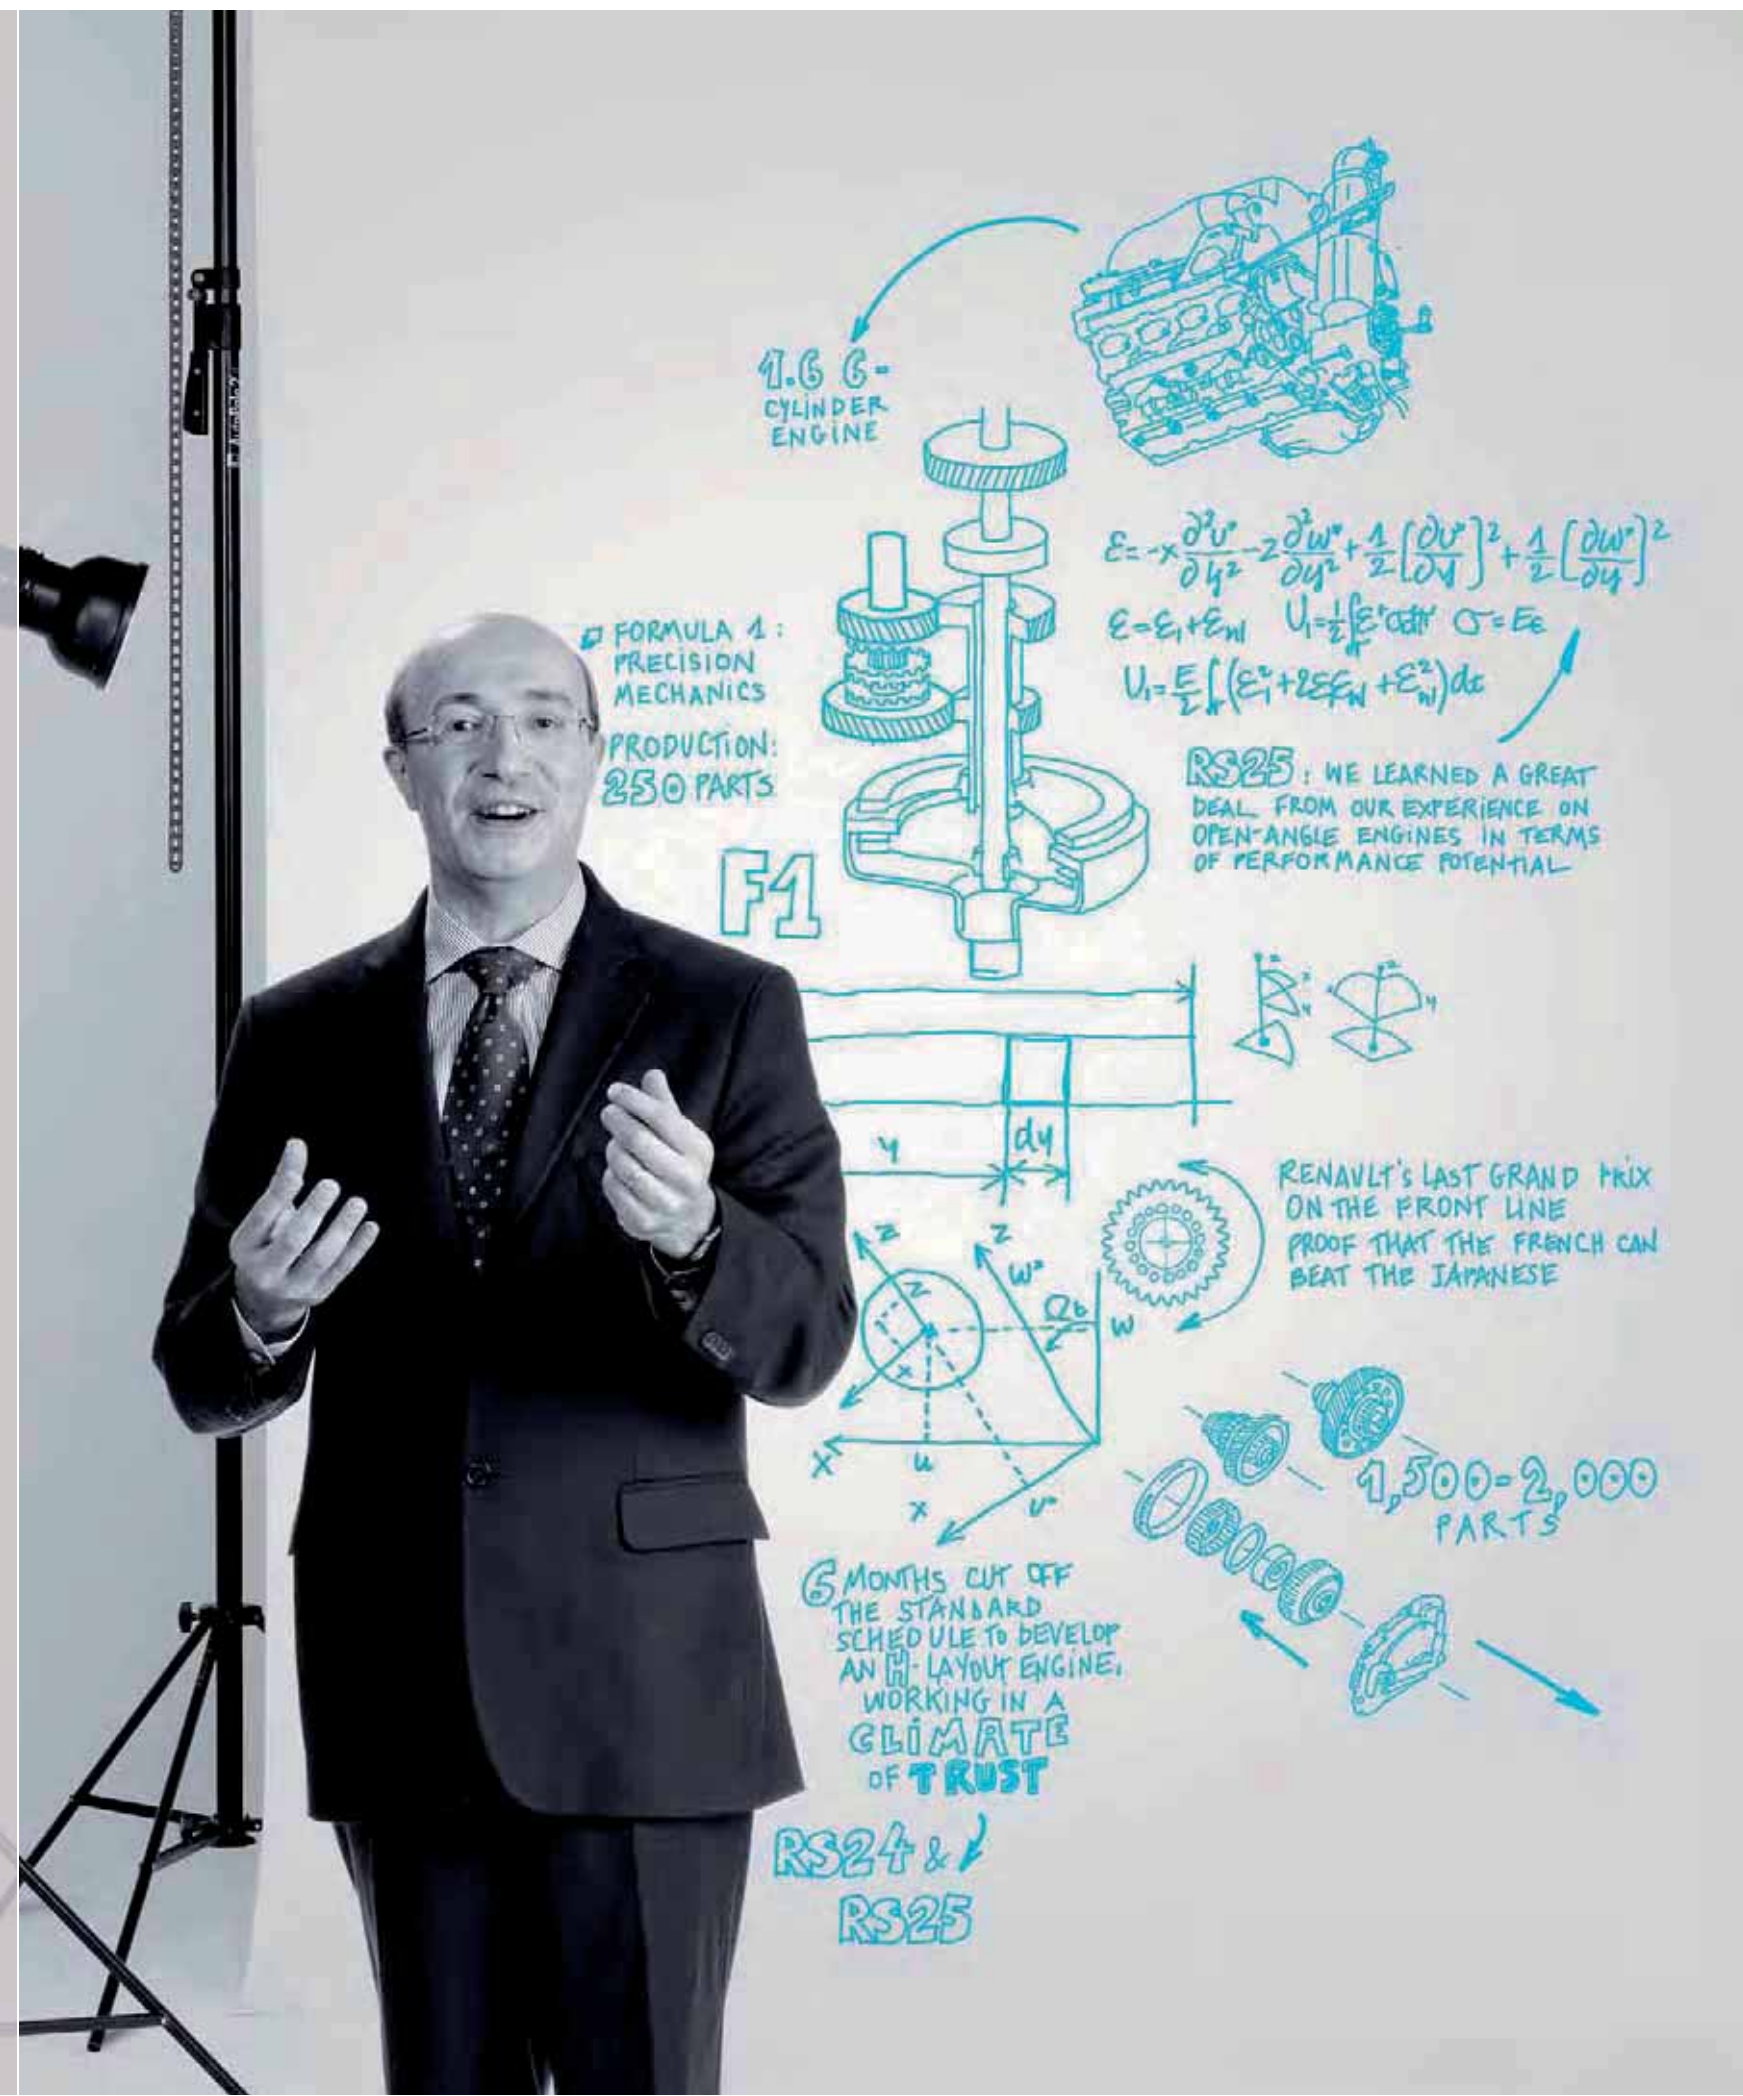 1.6 6-
CYLINDER
ENGINE
FORMULA 1:
PRECISION
MECHANICS
PRODUCTION:
250 PARTS
F1
RS25: WE LEARNED A GREAT
DEAL FROM OUR EXPERIENCE ON
OPEN-ANGLE ENGINES IN TERMS
OF PERFORMANCE POTENTIAL
y
dy
RENAULT'S LAST GRAND PRIX
ON THE FRONT LINE
PROOF THAT THE FRENCH CAN
BEAT THE JAPANESE
Z
Z
W
X
u
x
1,500-2,000
PARTS
6 MONTHS CUT OFF
THE STANDARD
SCHEDULE TO DEVELOP
AN H-LAYOUT ENGINE,
WORKING IN A
CLIMATE
OF TRUST
RS24 &
RS25